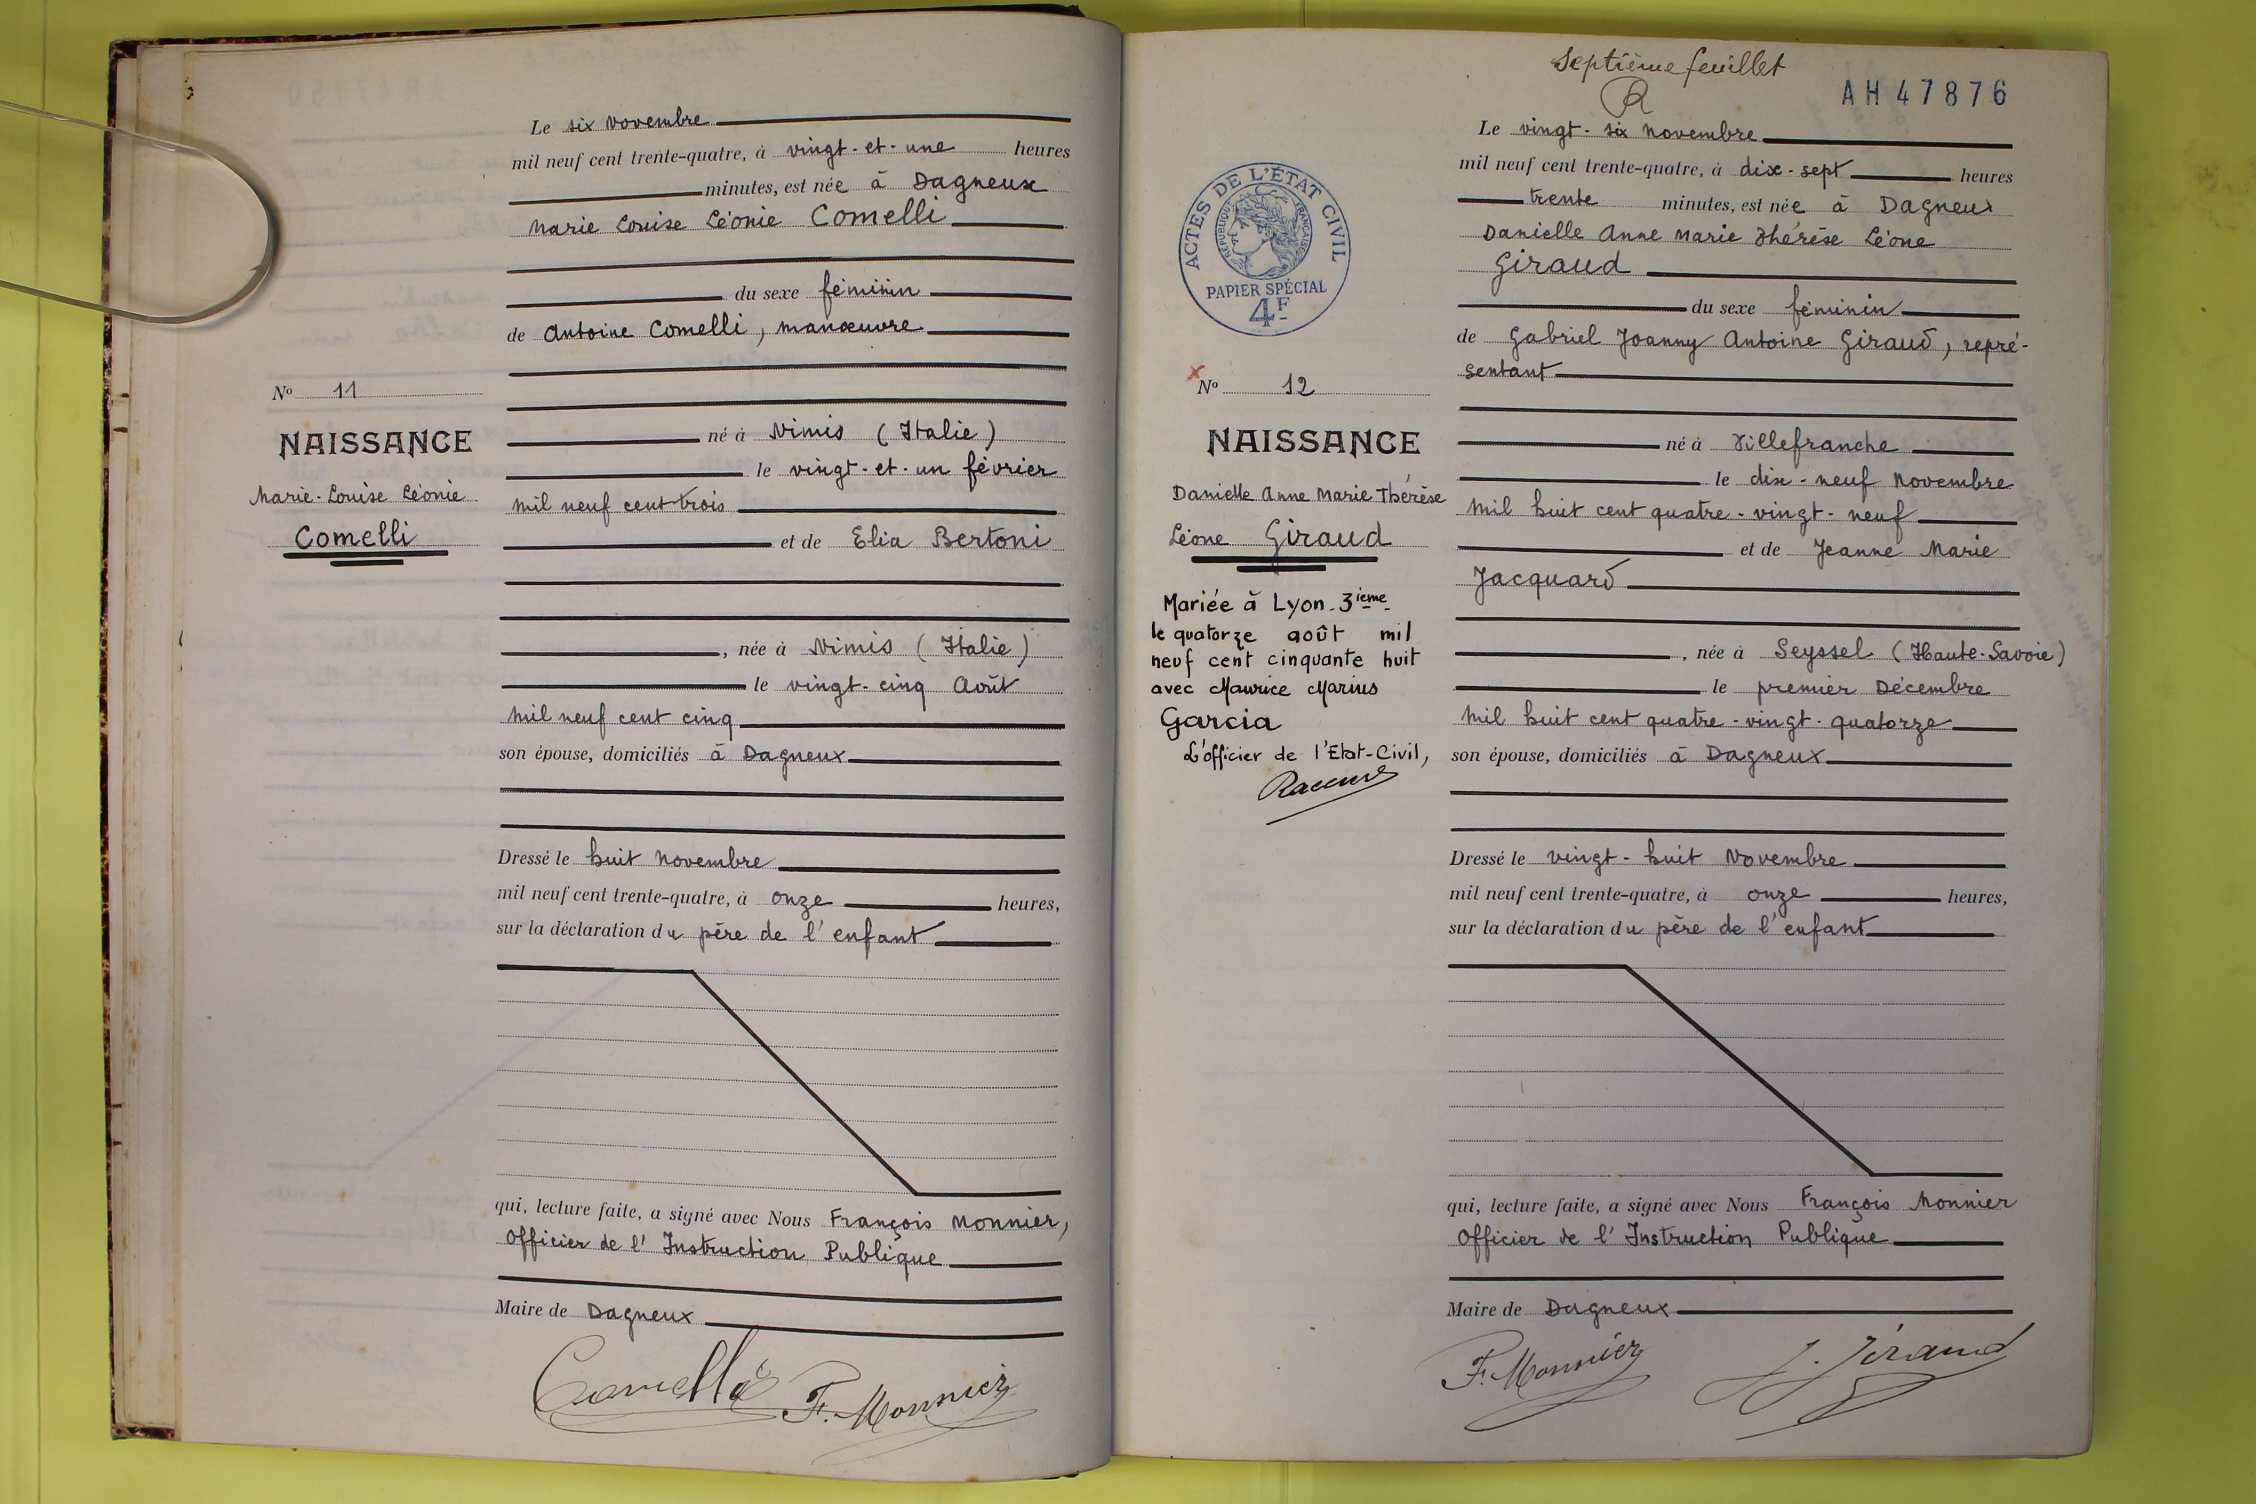 Le six Novembre
mil neuf cent trente-quatre, à vingt-et-une heures
minutes, est née à Dagneux
Marie Louise Léonie Comelli
du sexe féminin
de Antoine Comelli, manœuvre
né à Nimis (Italie)
le vingt-et-un février
mil neuf cent trois
et de Elia Bertoni
, née à Nimis (Italie)
le vingt-cinq Août
mil neuf cent cinq
son épouse, domiciliés à Dagneux
Dressé le huit Novembre
mil neuf cent trente-quatre, à onze heures,
sur la déclaration du père de l'enfant
qui, lecture faite, a signé avec Nous François Monnier,
Officier de l'Instruction Publique
Maire de Dagneux
Comelli F. Monnier
No 11
NAISSANCE
Marie-Louise Léonie
Comelli
Septième feuillet
AH 47876
Le vingt-six Novembre
mil neuf cent trente-quatre, à dix-sept heures
trente minutes, est née à Dagneux
Danielle Anne Marie Thérèse Léone
Giraud
du sexe féminin
de Gabriel Joanny Antoine Giraud, repré-
sentant
né à Villefranche
le dix-neuf Novembre
mil huit cent quatre-vingt-neuf
et de Jeanne Marie
Jacquard
, née à Seyssel (Haute-Savoie)
le premier Décembre
mil huit cent quatre-vingt-quatorze
son épouse, domiciliés à Dagneux
Dressé le vingt-huit Novembre
mil neuf cent trente-quatre, à onze heures,
sur la déclaration du père de l'enfant
qui, lecture faite, a signé avec Nous François Monnier
Officier de l'Instruction Publique
Maire de Dagneux
F. Monnier J. Giraud
ACTES DE L'ÉTAT CIVIL
RÉPUBLIQUE FRANÇAISE
PAPIER SPÉCIAL
4F
x No 12
NAISSANCE
Danielle Anne Marie Thérèse
Léone Giraud
Mariée à Lyon-3ieme
le quatorze août mil
neuf cent cinquante huit
avec Maurice Marius
Garcia
L'officier de l'Etat-Civil,